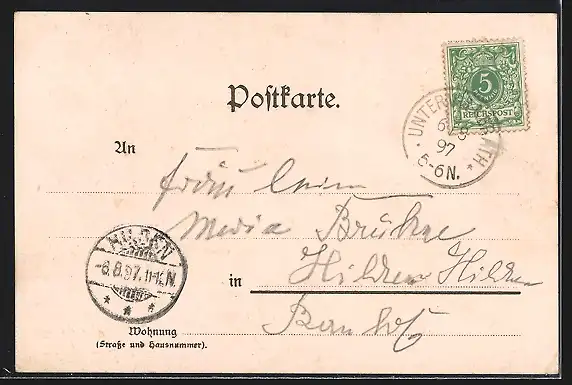 Postkarte.
5
REICHSPOST
6 8
97
5-6N.
An
Fräulein
Maria Brückne
HILDEN
-6.8.97. 11-12.N.
* * *
in
Hilden Hilden
Bahnhof
Wohnung
(Straße und Hausnummer).